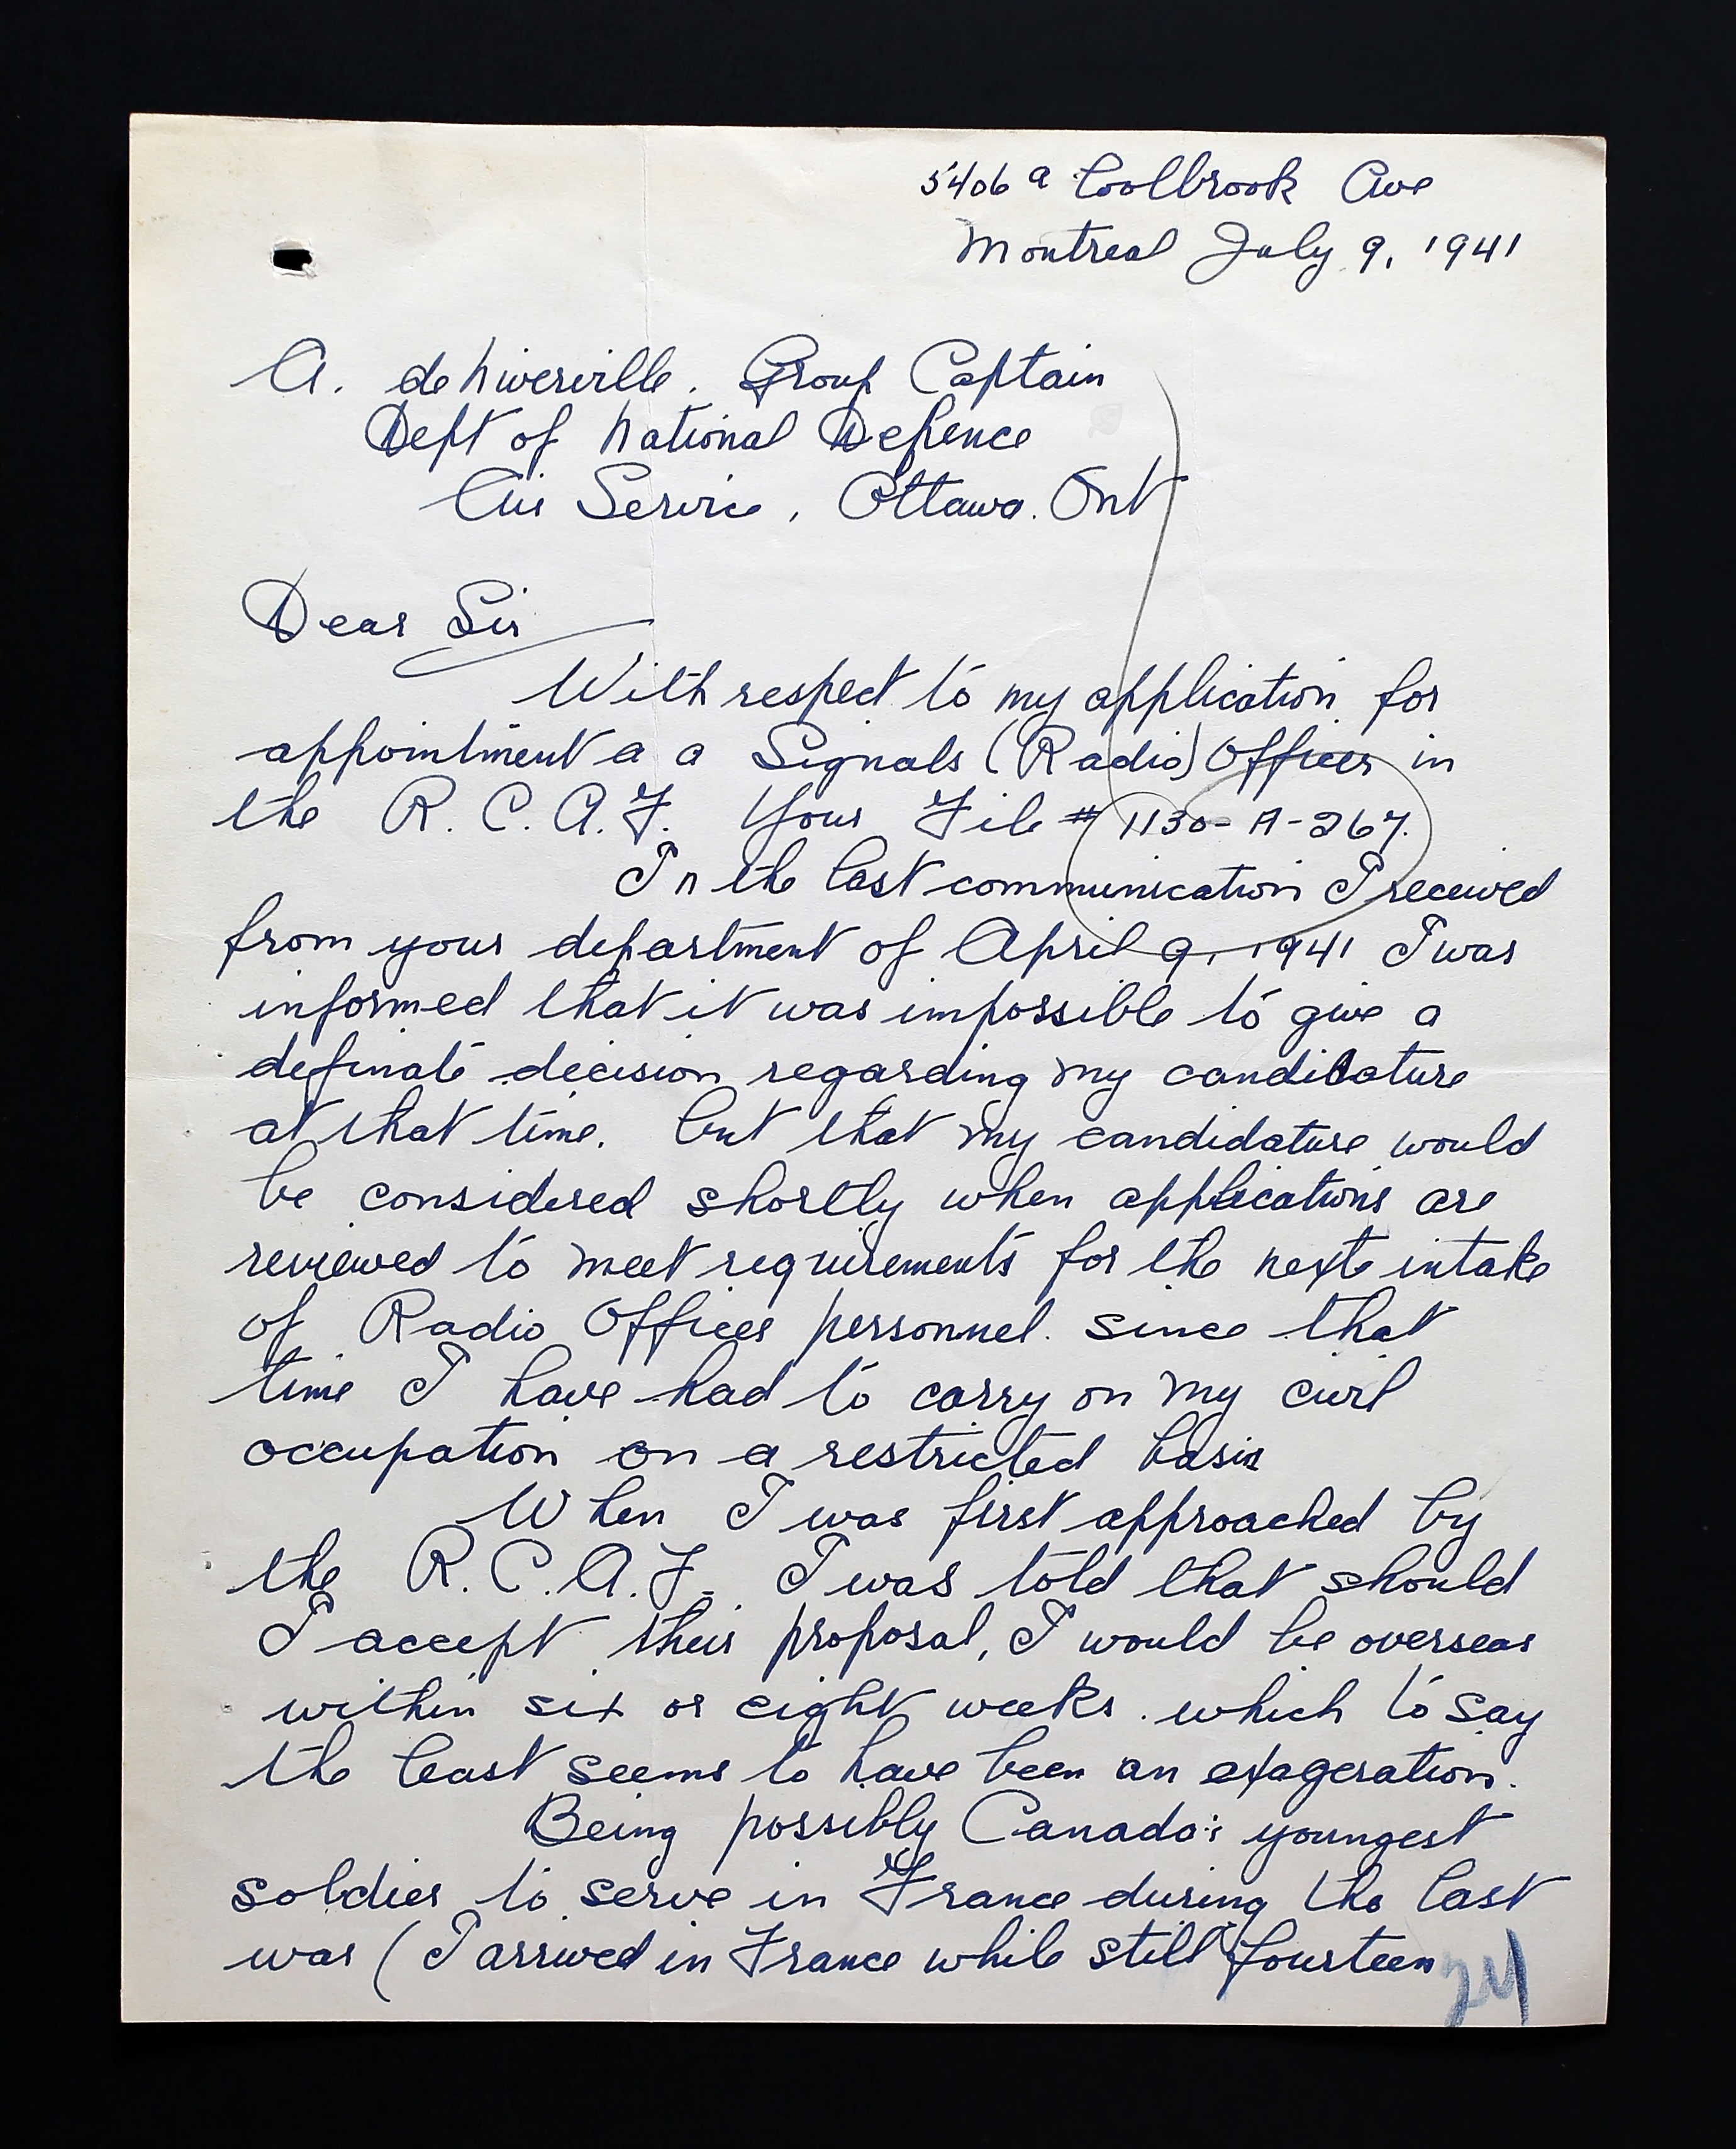 5406 a Coolbrook Ave
Montreal July 9, 1941
A. de Niverville. Group Captain
Dept of National Defence
Air Service, Ottawa. Ont
Dear Sir
With respect to my application for
appointment a a Signals (Radio) Officer in
the R. C. A. F. Your File # 1130- A-267.
In the last communication I received
from your department of April 9, 1941 I was
informed that it was impossible to give a
definate decision regarding my candidature
at that time. but that my candidature would
be considered shortly when applications are
reviewed to meet requirements for the next intake
of Radio Officer personnel. since that
time I have had to carry on my civil
occupation on a restricted basis
When I was first approached by
the R.C.A.F. I was told that should
I accept their proposal, I would be overseas
within six or eight weeks. which to say
the least seems to have been an exageration.
Being possibly Canada's youngest
soldier to serve in France during the last
war (I arrived in France while still fourteen
24